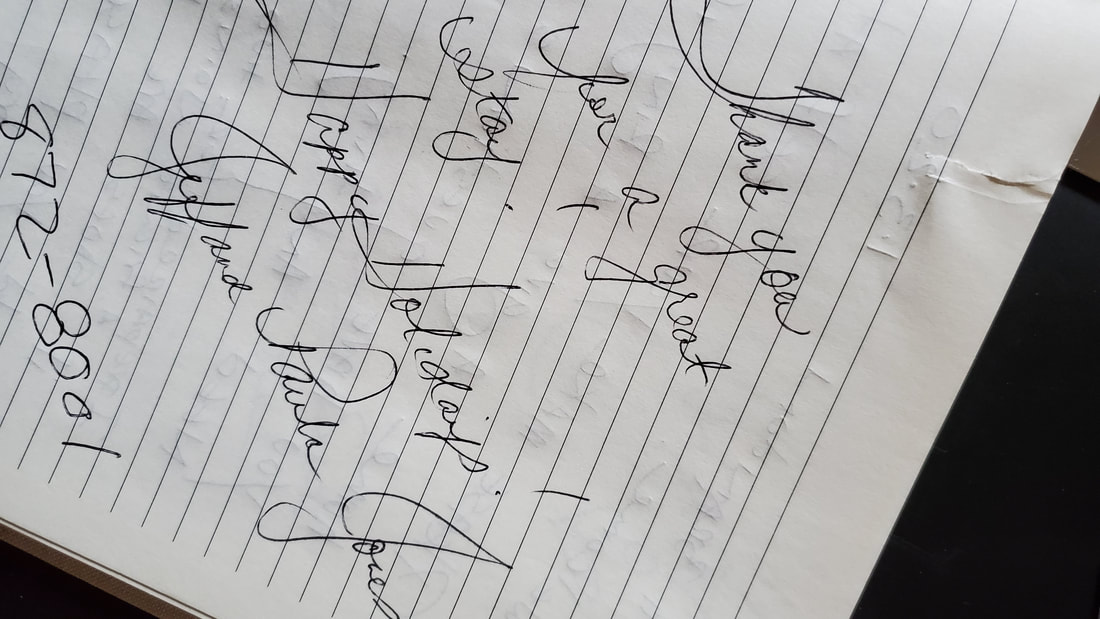 Thank you
for a great
stay!
Happy Holidays!
Jeff and Paula Jones
872-8001